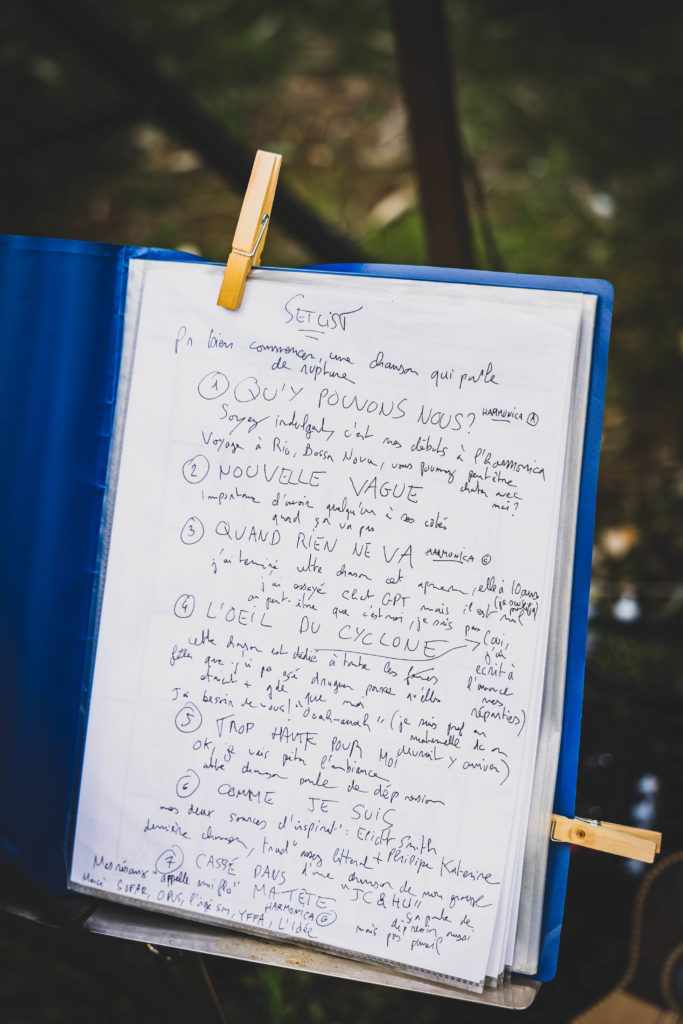 SETLIST
Pr bien commencer, une chanson qui parle
de rupture
① QU'Y POUVONS NOUS? HARMONICA Ⓐ
Soyez indulgents, c'est mes débuts à l'harmonica
Voyage à Rio, Bossa Nova, vous pouvez peut être
chanter avec
moi?
② NOUVELLE VAGUE
Importance d'avoir quelqu'un à ses côtés
quand ça va pas
③ QUAND RIEN NE VA HARMONICA Ⓒ
j'ai terminé cette chanson cet aprem, elle a 10 ans
j'ai essayé chat GPT mais il est nul
ou peut-être que c'est moi, je suis pas
④ L'OEIL DU CYCLONE
(oui,
j'ai
écrit à
l'avance
mes
réparties)
cette chanson est dédié à toutes les
filles que j'ai pas osé draguer parce qu'elles
étaient + gde que moi
J'ai besoin de vous! "Oooh-ouoh" (je suis prof en
maternelle dc on
devrait y arriver)
⑤ TROP HAUTE POUR MOI
OK, je vais péter l'ambiance
cette chanson parle de dépression
⑥ COMME JE SUIS
mes deux sources d'inspirat°: Eliott Smith
+ Philippe Katerine
dernière chanson, trad°
d'une chanson de mon groupe
"JC & HU"
⑦ CASSÉ DANS
MA TÊTE
HARMONICA Ⓖ
ça parle de
dépression aussi
mais pas pareil
Mes réseaux "appelle moi flo"
Merci SOFAR, OPUS, YFFA, L'Idée